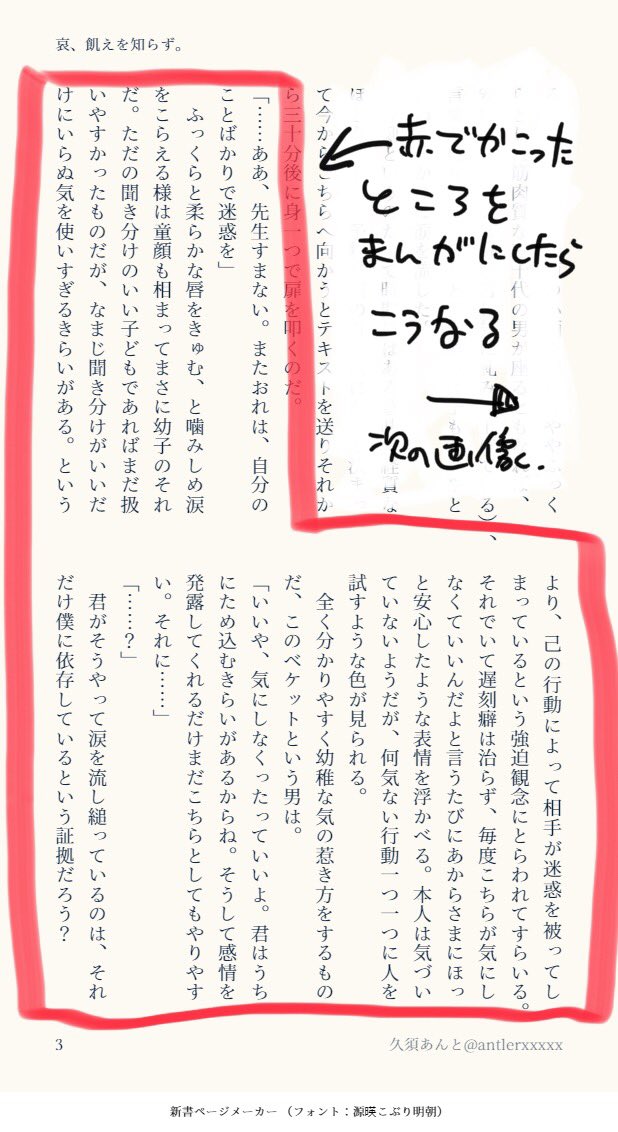 哀、飢えを知らず。
赤でかこった
ところを
まんがにしたら
こうなる
次の画像く.
て今からこちらへ向かうとテキストを送りそれか
ら三十分後に身一つで扉を叩くのだ。
「……ああ、先生すまない。またおれは、自分の
ことばかりで迷惑を」
ふっくらと柔らかな唇をきゅむ、と噛みしめ涙
をこらえる様は童顔も相まってまさに幼子のそれ
だ。ただの聞き分けのいい子どもであればまだ扱
いやすかったものだが、なまじ聞き分けがいいだ
けにいらぬ気を使いすぎるきらいがある。という
より、己の行動によって相手が迷惑を被ってし
まっているという強迫観念にとらわれてすらいる。
それでいて遅刻癖は治らず、毎度こちらが気にし
なくていいんだよと言うたびにあからさまにほっ
と安心したような表情を浮かべる。本人は気づい
ていないようだが、何気ない行動一つ一つに人を
試すような色が見られる。
全く分かりやすく幼稚な気の惹き方をするもの
だ、このベケットという男は。
「いいや、気にしなくったっていいよ。君はうち
にため込むきらいがあるからね。そうして感情を
発露してくれるだけまだこちらとしてもやりやす
い。それに……」
「……？」
君がそうやって涙を流し縋っているのは、それ
だけ僕に依存しているという証拠だろう？
3
久須あんと@antlerxxxxx
新書ページメーカー（フォント：源暎こぶり明朝）